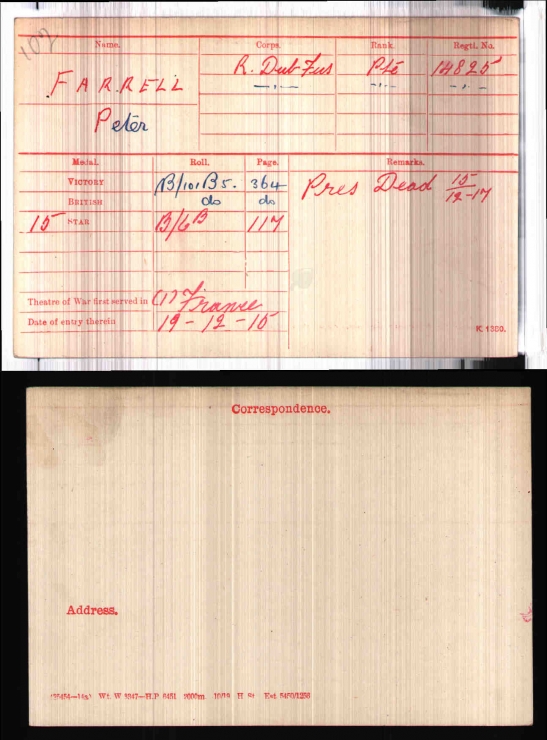 107
Name. Corps. Rank. Regtl. No.
FARRELL R. Dub. Fus Pte 14825
Peter —"— —"— —"—
Medal. Roll. Page. Remarks.
VICTORY B/101 B5. 364 Pres Dead 15/12-17
BRITISH do do
15 STAR B/6B 117
Theatre of War first served in (1) France
Date of entry therein 19-12-15
K 1380.
Correspondence.
Address.
Wt. W 5947—H.P. 6451 2000m. 10/19 H St Est 5450/1256